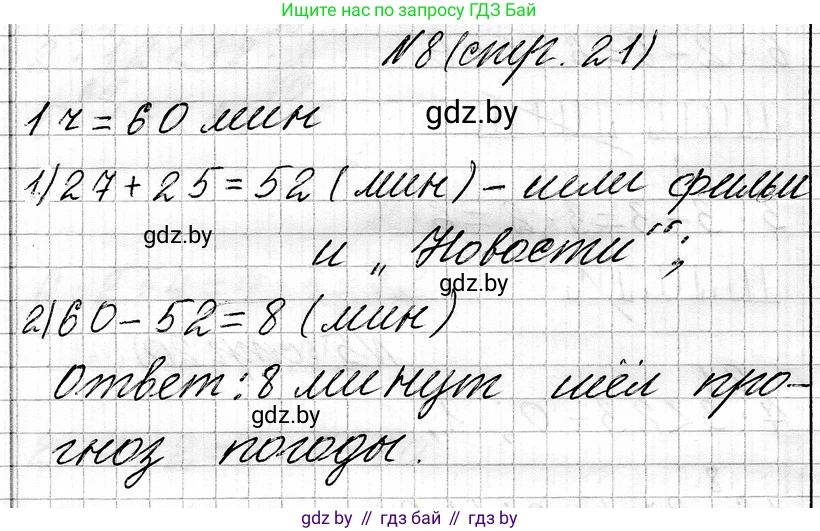 Ищите нас по запросу ГДЗ Бай
N8 (стр. 21)
1 ч = 60 мин
gdz.by
1) 27 + 25 = 52 (мин) – шли фильм
gdz.by
и „Новости“;
gdz.by
2) 60 – 52 = 8 (мин)
Ответ: 8 минут шёл про-
gdz.by
гноз погоды.
gdz.by // гдз бай // gdz.by